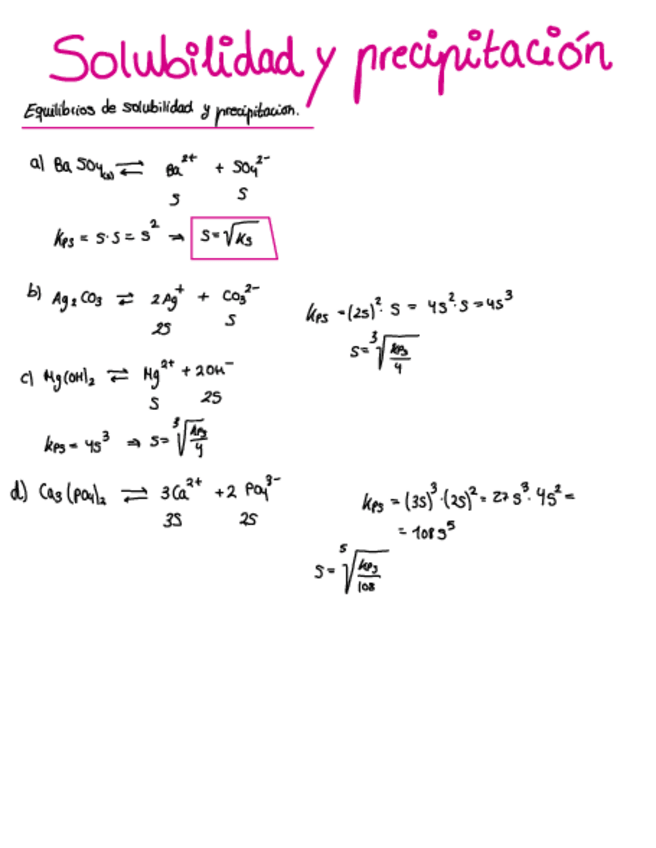 Solubilidad y precipitación
Equilibrios de solubilidad y precipitacion.
a) BaSO₄(s) ⇌ Ba²⁺ + SO₄²⁻
S S
kps = s·s = s² ⇒ S=√Ks
b) Ag₂CO₃ ⇌ 2Ag⁺ + CO₃²⁻
2S S
kps = (2s)²· s = 4s²·s = 4s³
s= ³√(kps/4)
c) Mg(OH)₂ ⇌ Mg²⁺ + 2OH⁻
S 2S
kps = 4s³ ⇒ s= ³√(kps/4)
d) Ca₃(PO₄)₂ ⇌ 3Ca²⁺ + 2 PO₄³⁻
3S 2S
kps = (3s)³·(2s)² = 27s³·4s² =
= 108s⁵
s= ⁵√(kps/108)